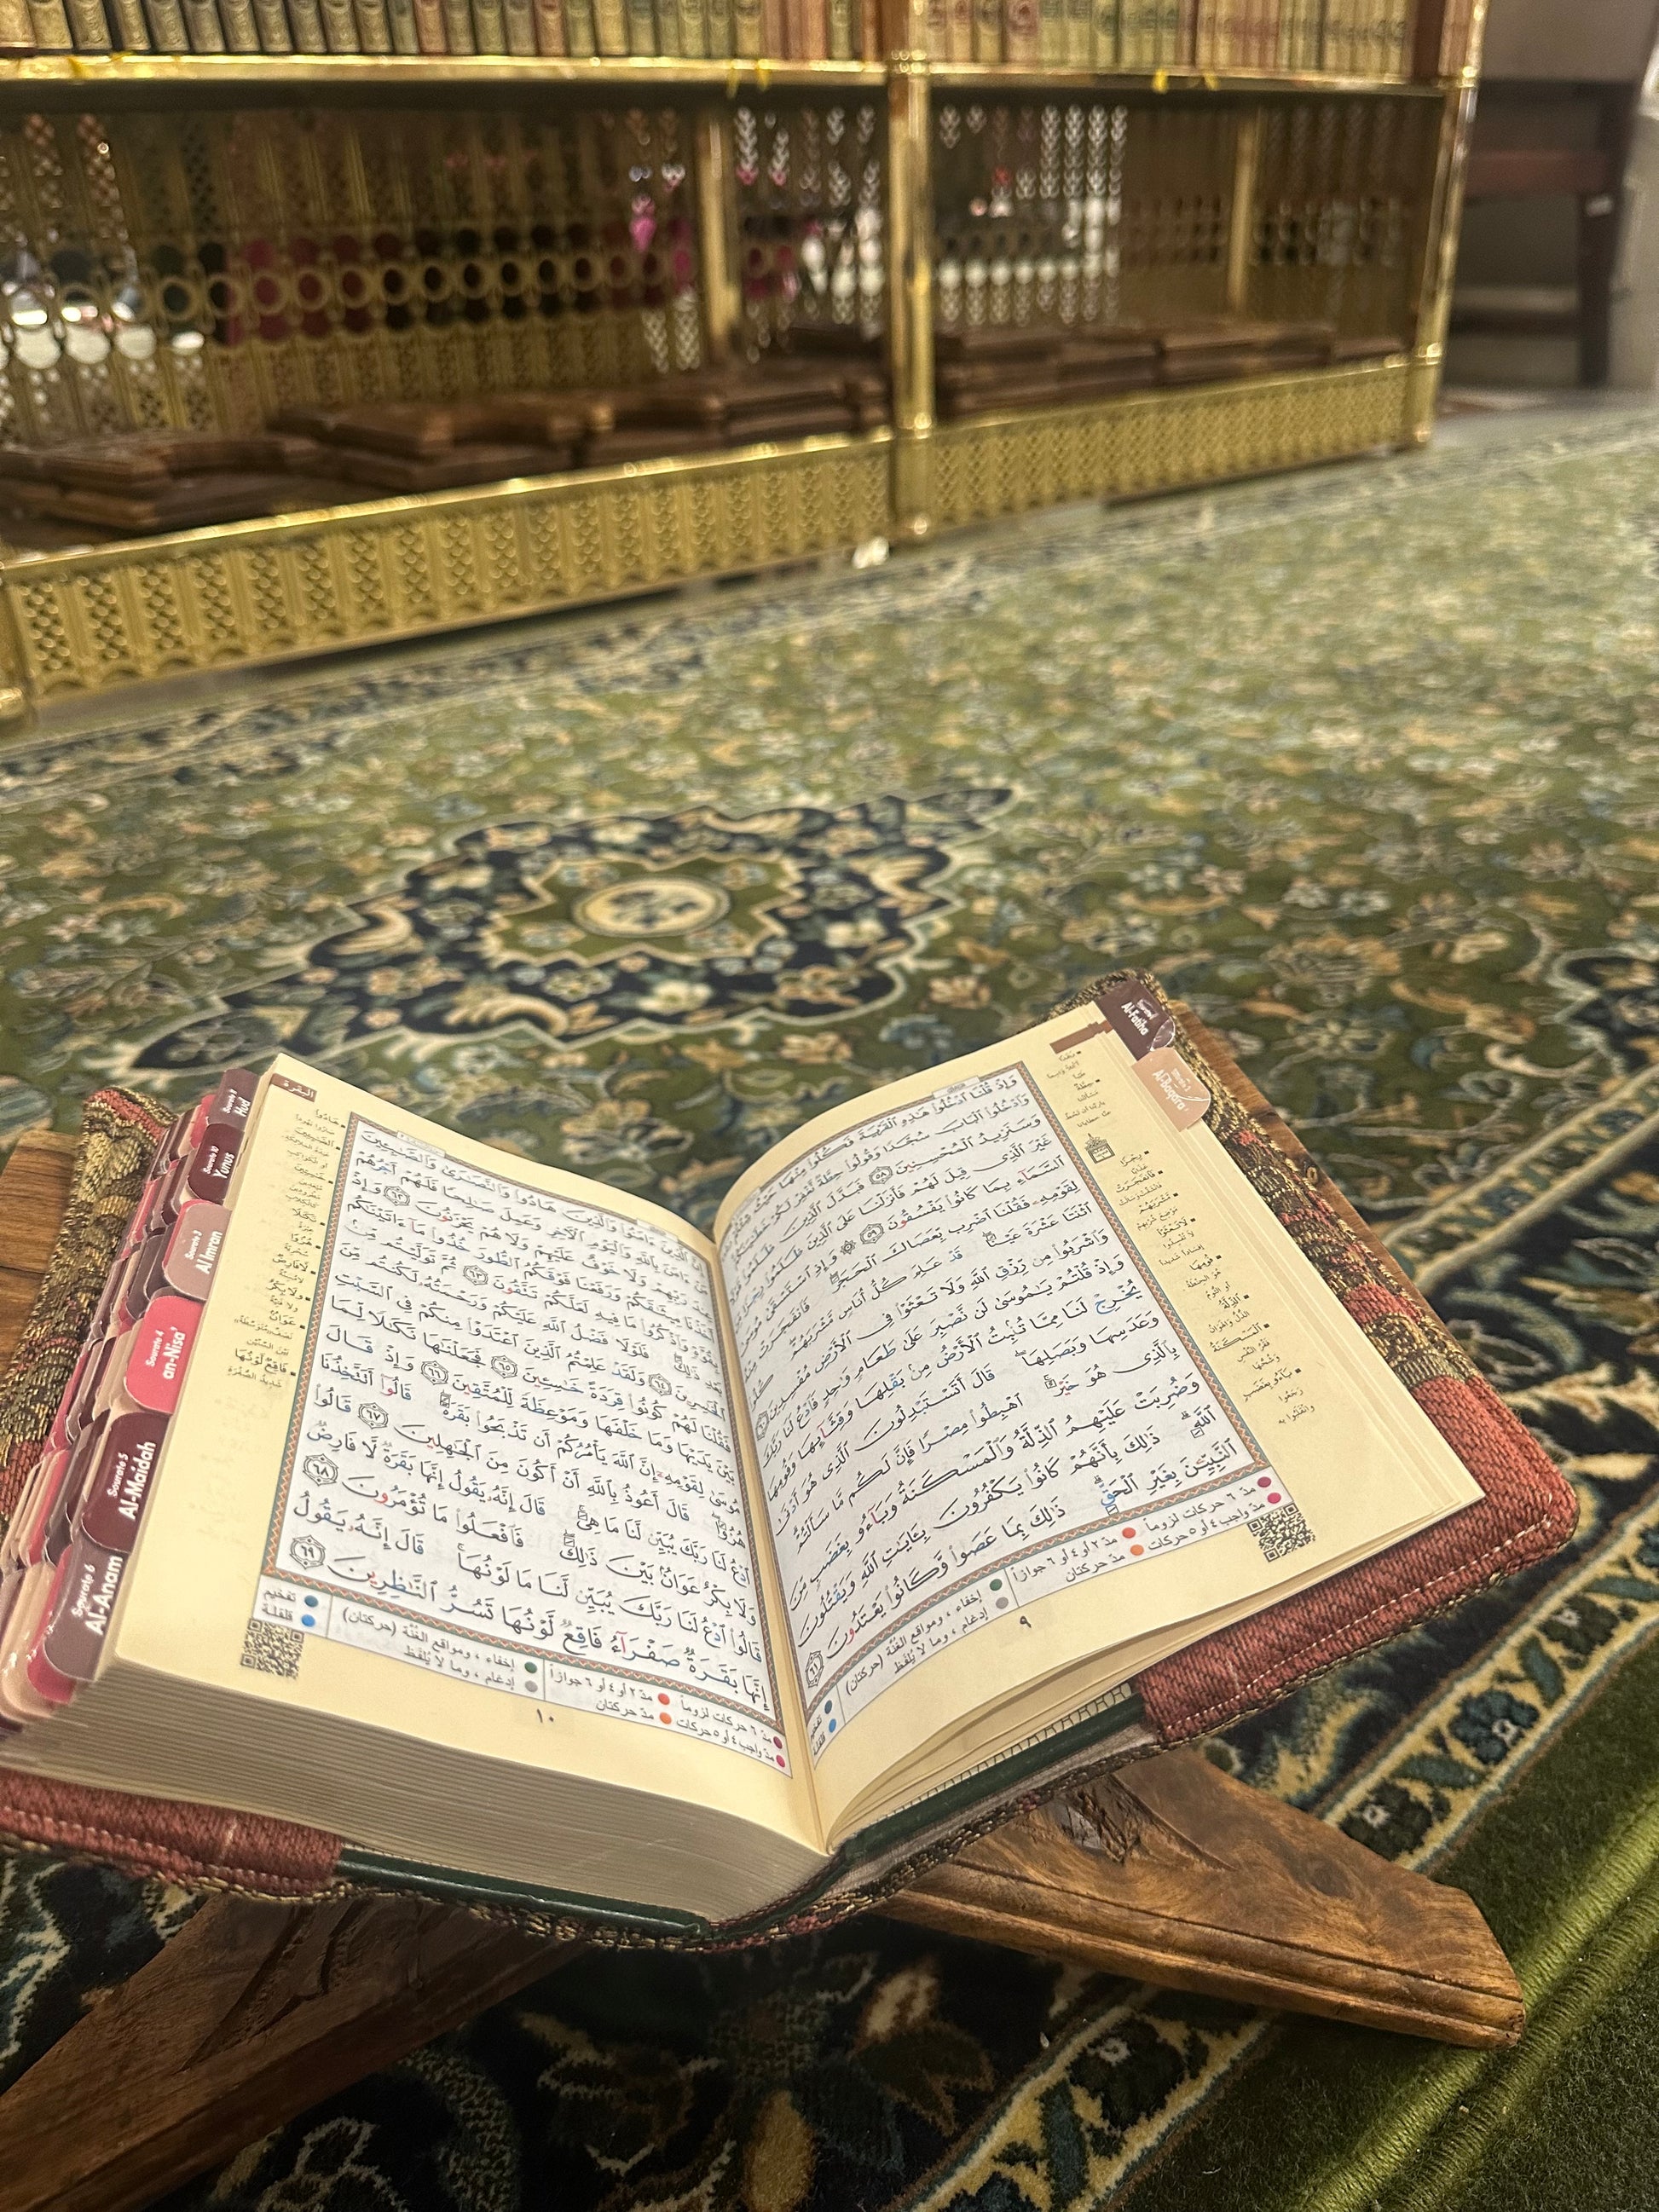 Sourate 1
Al-Fatiha
Sourate 2
Al-Baqara
وَإِذْ قُلْنَا ٱدْخُلُوا۟ هَـٰذِهِ ٱلْقَرْيَةَ فَكُلُوا۟ مِنْهَا حَيْثُ
وَٱدْخُلُوا۟ ٱلْبَابَ سُجَّدًا وَقُولُوا۟ حِطَّةٌ نَّغْفِرْ لَكُمْ
وَسَنَزِيدُ ٱلْمُحْسِنِينَ ٥٨ فَبَدَّلَ ٱلَّذِينَ ظَلَمُوا۟
غَيْرَ ٱلَّذِى قِيلَ لَهُمْ فَأَنزَلْنَا عَلَى ٱلَّذِينَ ظَلَمُوا۟ رِجْزًا
ٱلسَّمَآءِ بِمَا كَانُوا۟ يَفْسُقُونَ ٥٩ ۞ وَإِذِ ٱسْتَسْقَىٰ مُوسَىٰ
لِقَوْمِهِۦ فَقُلْنَا ٱضْرِب بِّعَصَاكَ ٱلْحَجَرَ ۖ فَٱنفَجَرَتْ مِنْهُ
ٱثْنَتَا عَشْرَةَ عَيْنًا ۖ قَدْ عَلِمَ كُلُّ أُنَاسٍ مَّشْرَبَهُمْ ۖ كُلُوا۟
وَٱشْرَبُوا۟ مِن رِّزْقِ ٱللَّهِ وَلَا تَعْثَوْا۟ فِى ٱلْأَرْضِ مُفْسِدِينَ ٦٠
وَإِذْ قُلْتُمْ يَـٰمُوسَىٰ لَن نَّصْبِرَ عَلَىٰ طَعَامٍ وَٰحِدٍ فَٱدْعُ لَنَا رَبَّكَ
يُخْرِجْ لَنَا مِمَّا تُنۢبِتُ ٱلْأَرْضُ مِنۢ بَقْلِهَا وَقِثَّآئِهَا وَفُومِهَا
وَعَدَسِهَا وَبَصَلِهَا ۖ قَالَ أَتَسْتَبْدِلُونَ ٱلَّذِى هُوَ أَدْنَىٰ
بِٱلَّذِى هُوَ خَيْرٌ ۚ ٱهْبِطُوا۟ مِصْرًا فَإِنَّ لَكُم مَّا سَأَلْتُمْ ۗ
وَضُرِبَتْ عَلَيْهِمُ ٱلذِّلَّةُ وَٱلْمَسْكَنَةُ وَبَآءُو بِغَضَبٍ مِّنَ
ٱللَّهِ ۗ ذَٰلِكَ بِأَنَّهُمْ كَانُوا۟ يَكْفُرُونَ بِـَٔايَـٰتِ ٱللَّهِ وَيَقْتُلُونَ
ٱلنَّبِيِّـۧنَ بِغَيْرِ ٱلْحَقِّ ۗ ذَٰلِكَ بِمَا عَصَوا۟ وَّكَانُوا۟ يَعْتَدُونَ ٦١
مدّ ٦ حركات لزوماً مدّ ٢ أو ٤ أو ٦ جوازاً إخفاء ، ومواقع الغُنَّة (حركتان) تفخيم
مدّ واجب ٤ أو ٥ حركات مدّ حركتان إدغام ، وما لا يُلفَظ قلقلة
٩
البقرة
إِنَّ ٱلَّذِينَ ءَامَنُوا۟ وَٱلَّذِينَ هَادُوا۟ وَٱلنَّصَـٰرَىٰ وَٱلصَّـٰبِـِٔينَ
مَنْ ءَامَنَ بِٱللَّهِ وَٱلْيَوْمِ ٱلْـَٔاخِرِ وَعَمِلَ صَـٰلِحًا فَلَهُمْ أَجْرُهُمْ
عِندَ رَبِّهِمْ وَلَا خَوْفٌ عَلَيْهِمْ وَلَا هُمْ يَحْزَنُونَ ٦٢ وَإِذْ
أَخَذْنَا مِيثَـٰقَكُمْ وَرَفَعْنَا فَوْقَكُمُ ٱلطُّورَ خُذُوا۟ مَآ ءَاتَيْنَـٰكُم
بِقُوَّةٍ وَٱذْكُرُوا۟ مَا فِيهِ لَعَلَّكُمْ تَتَّقُونَ ٦٣ ثُمَّ تَوَلَّيْتُم مِّنۢ
بَعْدِ ذَٰلِكَ ۖ فَلَوْلَا فَضْلُ ٱللَّهِ عَلَيْكُمْ وَرَحْمَتُهُۥ لَكُنتُم مِّنَ
ٱلْخَـٰسِرِينَ ٦٤ وَلَقَدْ عَلِمْتُمُ ٱلَّذِينَ ٱعْتَدَوْا۟ مِنكُمْ فِى ٱلسَّبْتِ
فَقُلْنَا لَهُمْ كُونُوا۟ قِرَدَةً خَـٰسِـِٔينَ ٦٥ فَجَعَلْنَـٰهَا نَكَـٰلًا لِّمَا
بَيْنَ يَدَيْهَا وَمَا خَلْفَهَا وَمَوْعِظَةً لِّلْمُتَّقِينَ ٦٦ وَإِذْ قَالَ
مُوسَىٰ لِقَوْمِهِۦٓ إِنَّ ٱللَّهَ يَأْمُرُكُمْ أَن تَذْبَحُوا۟ بَقَرَةً ۖ قَالُوٓا۟ أَتَتَّخِذُنَا
هُزُوًا ۖ قَالَ أَعُوذُ بِٱللَّهِ أَنْ أَكُونَ مِنَ ٱلْجَـٰهِلِينَ ٦٧ قَالُوا۟
ٱدْعُ لَنَا رَبَّكَ يُبَيِّن لَّنَا مَا هِىَ ۚ قَالَ إِنَّهُۥ يَقُولُ إِنَّهَا بَقَرَةٌ لَّا فَارِضٌ
وَلَا بِكْرٌ عَوَانٌۢ بَيْنَ ذَٰلِكَ ۖ فَٱفْعَلُوا۟ مَا تُؤْمَرُونَ ٦٨
قَالُوا۟ ٱدْعُ لَنَا رَبَّكَ يُبَيِّن لَّنَا مَا لَوْنُهَا ۚ قَالَ إِنَّهُۥ يَقُولُ
إِنَّهَا بَقَرَةٌ صَفْرَآءُ فَاقِعٌ لَّوْنُهَا تَسُرُّ ٱلنَّـٰظِرِينَ ٦٩
مدّ ٦ حركات لزوماً مدّ ٢ أو ٤ أو ٦ جوازاً إخفاء ، ومواقع الغُنَّة (حركتان) تفخيم
مدّ واجب ٤ أو ٥ حركات مدّ حركتان إدغام ، وما لا يُلفَظ قلقلة
١٠
Hud
Sourate 10
Yunus
Sourate 3
Al Imran
Sourate 4
an-Nisa'
Sourate 5
Al-Maidah
Sourate 6
Al-Anam